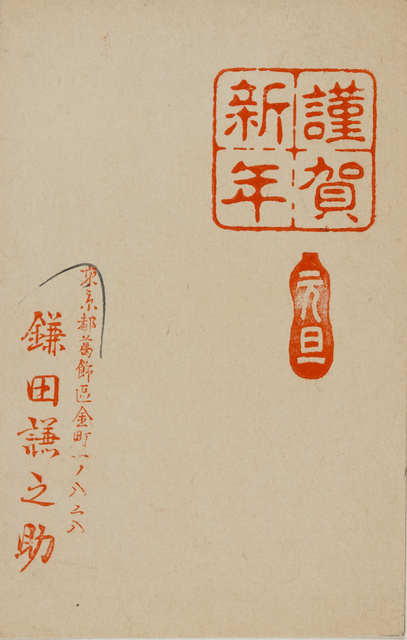 謹賀
新年
元旦
東京都葛飾区金町一ノ八二八
鎌田謙之助